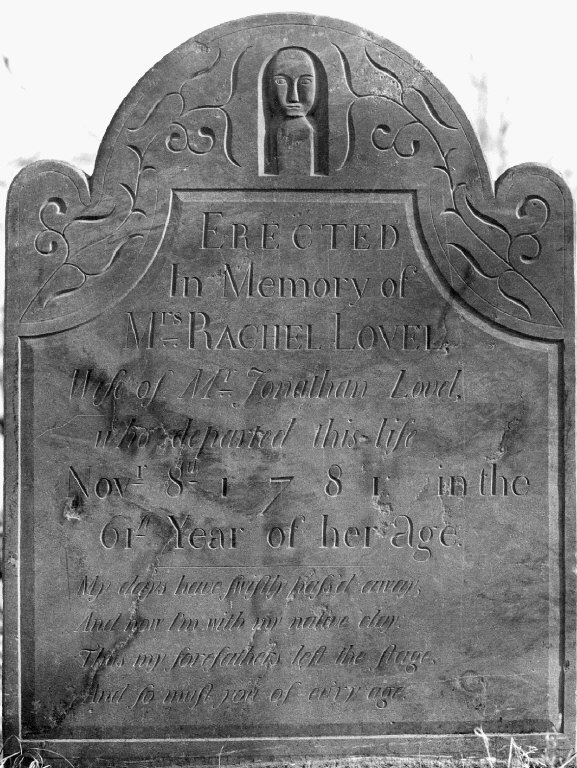 ERECTED
In Memory of
Mrs RACHEL LOVEL,
Wife of Mr Jonathan Lovel,
who departed this life
Novr 8th 1781, in the
61st Year of her Age.
My days have ſwiftly paſs'd away,
And now I'm with my native clay:
Thus my forefathers left the ſtage,
And ſo muſt you of every age.